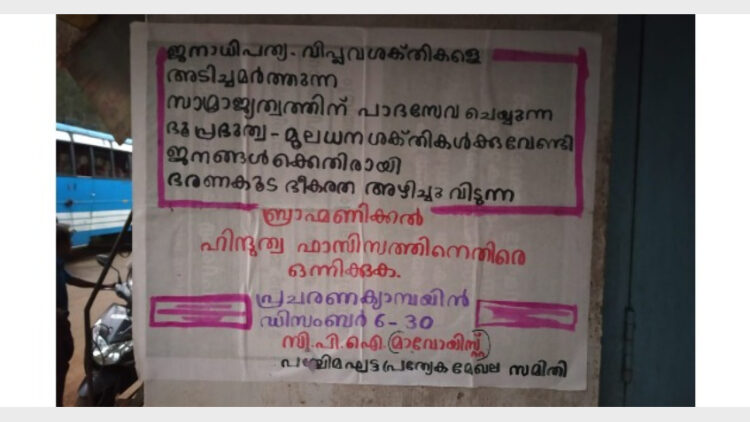 ജനാധിപത്യ-വിപ്ലവശക്തികളെ
അടിച്ചമർത്തുന്ന
സാമ്രാജ്യത്വത്തിന് പാദസേവ ചെയ്യുന്ന
ഭൂപ്രഭുത്വ-മൂലധനശക്തികൾക്കുവേണ്ടി
ജനങ്ങൾക്കെതിരായി
ഭരണകൂട ഭീകരത അഴിച്ചു വിടുന്ന
ബ്രാഹ്മണിക്കൽ
ഹിന്ദുത്വ ഫാസിസത്തിനെതിരെ
ഒന്നിക്കുക.
പ്രചരണക്യാമ്പയിൻ
ഡിസംബർ 6-30
സി.പി.ഐ.(മാവോയിസ്റ്റ്)
പശ്ചിമഘട്ട പ്രത്യേക മേഖല സമിതി